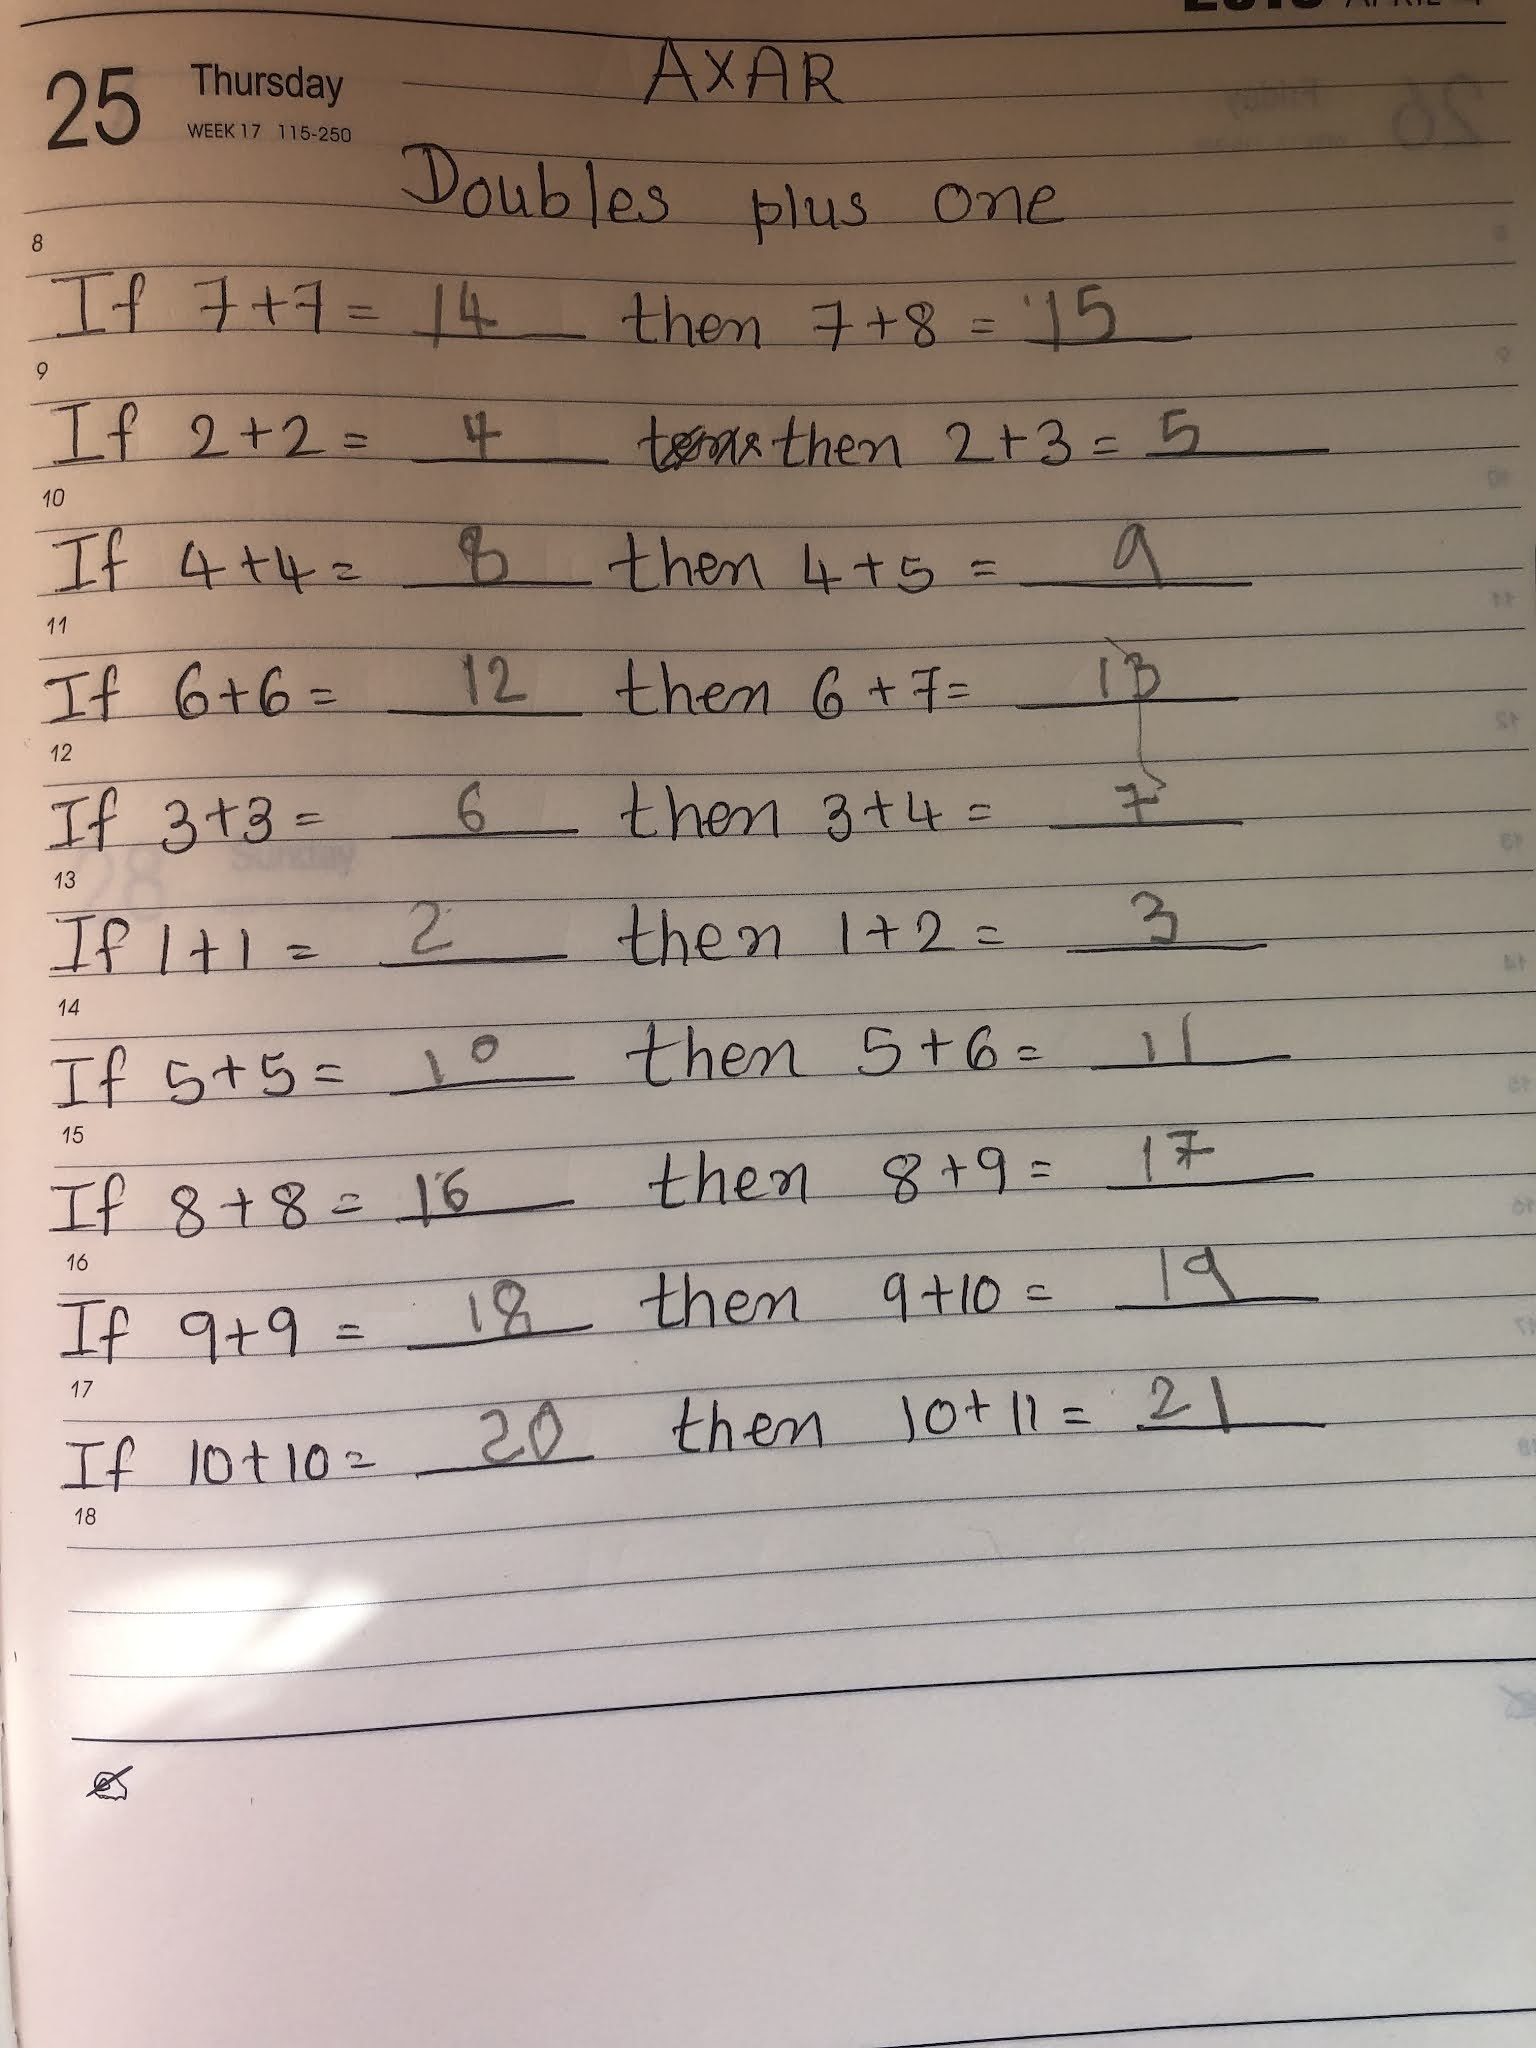 25 Thursday AXAR
WEEK 17 115-250
Doubles plus one
8
If 7+7 = 14 then 7+8 = 15
9
If 2+2 = 4 then 2+3 = 5
10
If 4+4 = 8 then 4+5 = 9
11
If 6+6 = 12 then 6+7 = 13
12
If 3+3 = 6 then 3+4 = 7
13
If 1+1 = 2 then 1+2 = 3
14
If 5+5 = 10 then 5+6 = 11
15
If 8+8 = 16 then 8+9 = 17
16
If 9+9 = 18 then 9+10 = 19
17
If 10+10 = 20 then 10+11 = 21
18